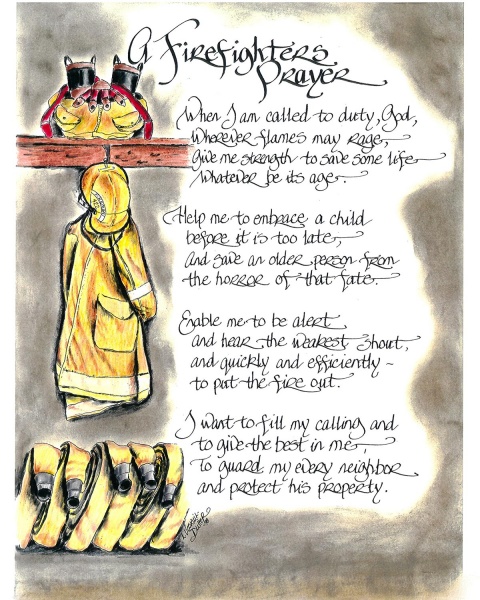 A Firefighters
Prayer
When I am called to duty, God,
Wherever flames may rage,
Give me strength to save some life
Whatever be its age.
Help me to embrace a child
before it is too late,
And save an older person from
the horror of that fate.
Enable me to be alert
and hear the weakest shout,
and quickly and efficiently ~
to put the fire out.
I want to fill my calling and
to give the best in me,
To guard my every neighbor
and protect his property.